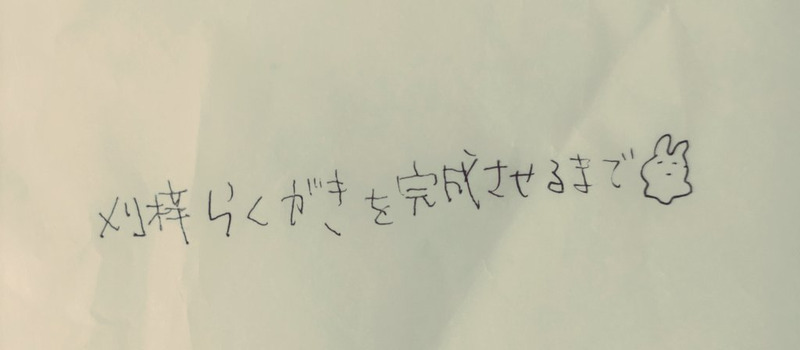 刈梓らくがきを完成させるまで